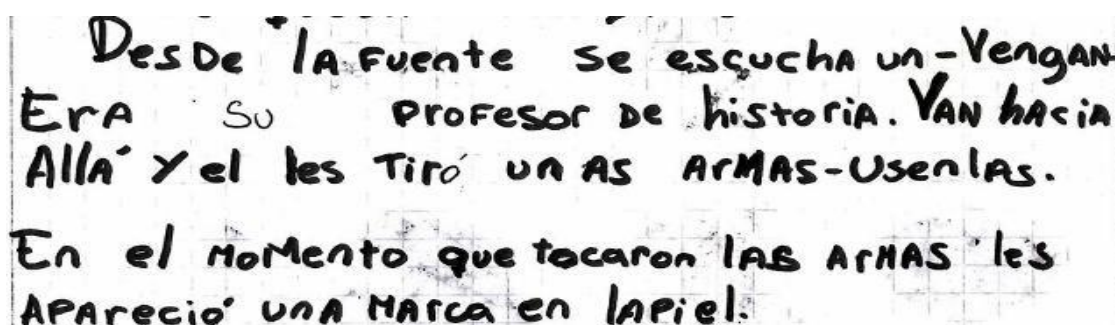 Desde la fuente se escucha un -Vengan
Era su profesor de historia. Van hacia
Allá y el les tiró unas armas-Usenlas.
En el momento que tocaron las armas les
apareció una marca en la piel.